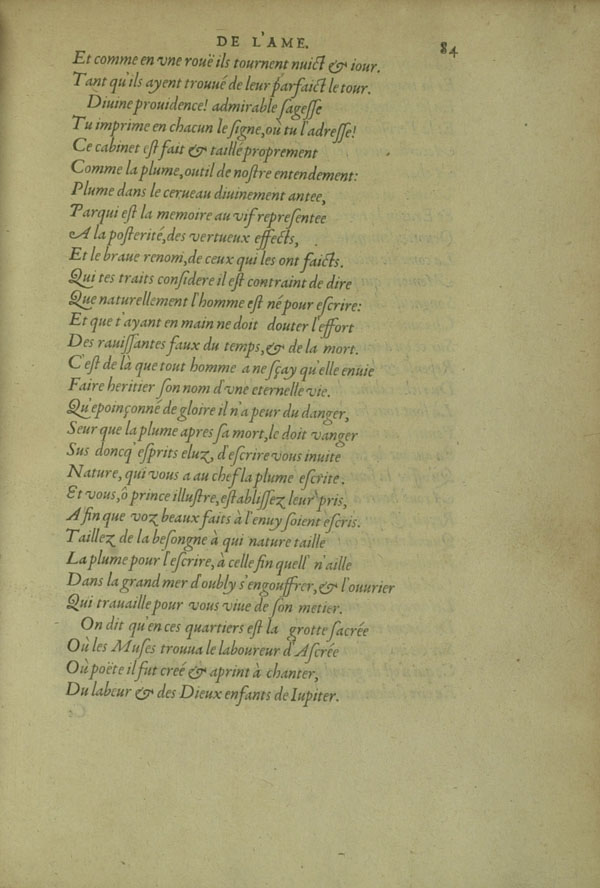 DE L'AME. 84
Et comme en vne rouë ils tournent nuict & iour.
Tant qu'ils ayent trouué de leur parfaict le tour.
Diuine prouidence! admirable ſageſſe
Tu imprime en chacun le ſigne, où tu l'adreſſe!
Ce cabinet eſt fait & taillé proprement
Comme la plume, outil de noſtre entendement:
Plume dans le cerueau diuinement antee,
Par qui eſt la memoire au vif repreſentee
A la poſterité, des vertueux effects,
Et le braue renom, de ceux qui les ont faicts.
Qui tes traits conſidere il eſt contraint de dire
Que naturellement l'homme eſt né pour eſcrire:
Et que t'ayant en main ne doit douter l'effort
Des rauiſſantes faux du temps, & de la mort.
C'eſt de là que tout homme a ne ſçay qu'elle enuie
Faire heritier ſon nom d'vne eternelle vie.
Qu'epoinçonné de gloire il n'a peur du danger,
Seur que la plume apres ſa mort, le doit vanger
Sus doncq' eſprits eluz, d'eſcrire vous inuite
Nature, qui vous a au chef la plume eſcrite.
Et vous, ô prince illuſtre, eſtabliſſez leur pris,
Afin que voz beaux faits à l'enuy ſoient eſcris.
Taillez de la beſongne à qui nature taille
La plume pour l'eſcrire, à celle fin quell' n'aille
Dans la grand mer d'oubly s'engouffrer, & l'ouurier
Qui trauaille pour vous viue de ſon metier.
On dit qu'en ces quartiers eſt la grotte ſacrée
Où les Muſes trouua le laboureur d'Aſcrée
Où poëte il fut creé & aprint à chanter,
Du labeur & des Dieux enfants de Iupiter.